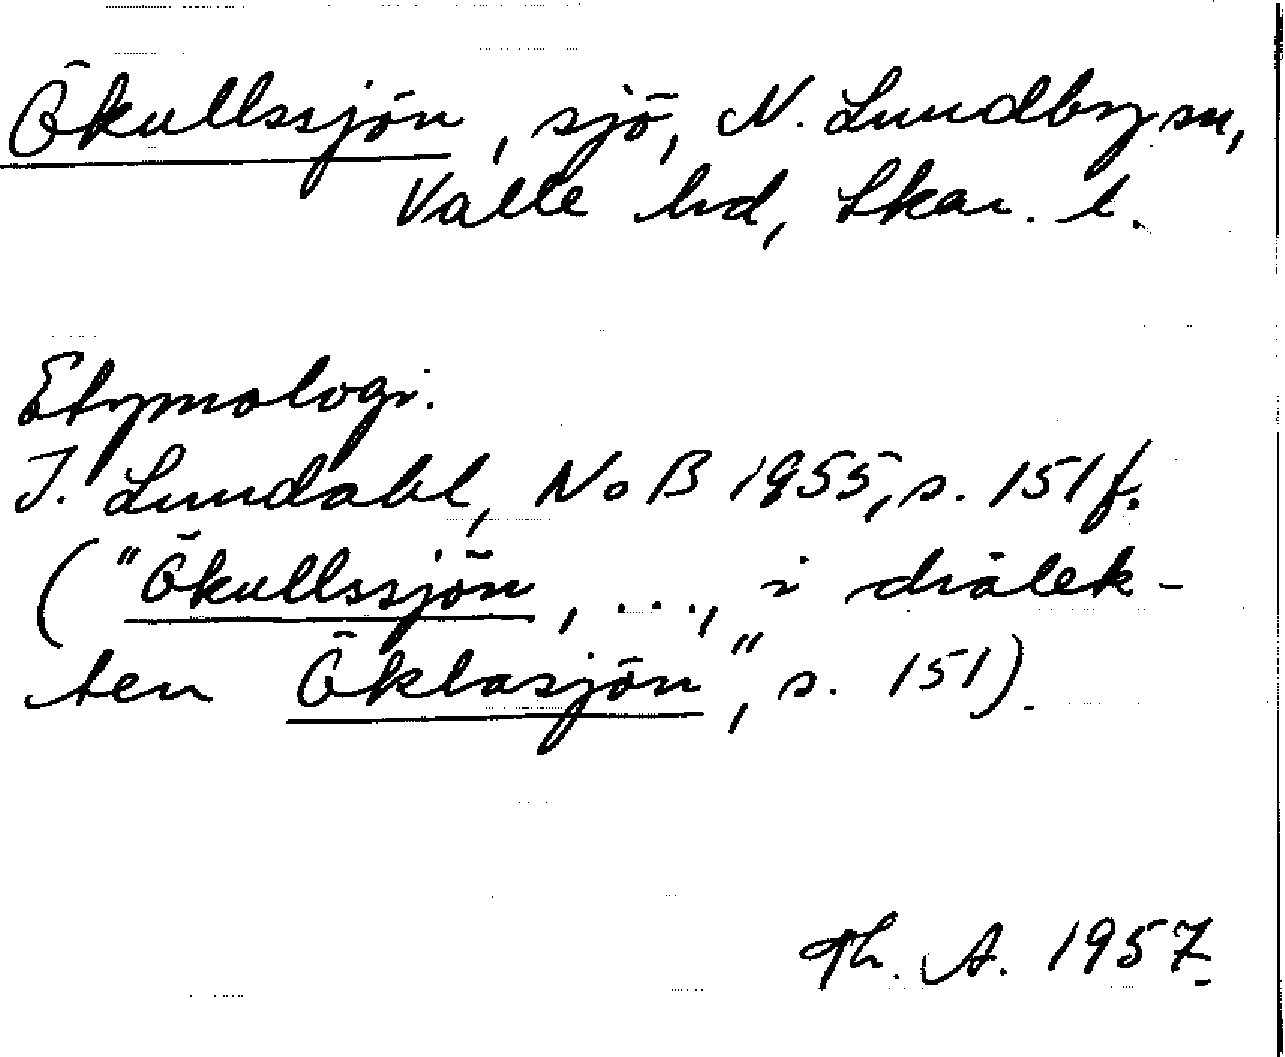 Ökullssjön, sjö, N. Lundby sn,
Valle hd, Skar. l.
Etymologi:
I. Lundahl, NoB 1955, s. 151f.
("Ökullssjön, ..., i dialek-
ten Öklasjön", s. 151).
Th. A. 1957.